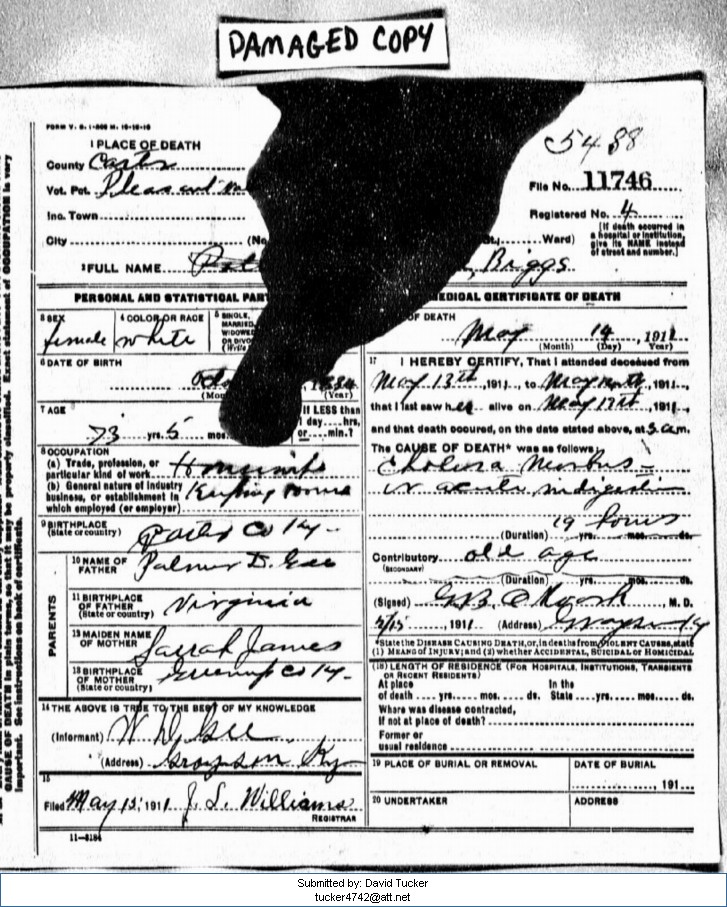 DAMAGED COPY
FORM V. S. 1-
5488
1 PLACE OF DEATH
County Carter
Vot. Pct. Pleasant
File No. 11746
Inc. Town
Registered No. 4
City (No St., Ward)
[If death occurred in a hospital or institution, give its NAME instead of street and number.]
2 FULL NAME Briggs
PERSONAL AND STATISTICAL PAR
MEDICAL CERTIFICATE OF DEATH
3 SEX female
4 COLOR OR RACE white
5 SINGLE, MARRIED, WIDOWED OR DIVO (Write
OF DEATH May 14, 1911
(Month) (Day) (Year)
6 DATE OF BIRTH
(Mon (Year)
7 AGE 73 yrs. 5 mos.
If LESS than 1 day....hrs. or....min.?
8 OCCUPATION
(a) Trade, profession, or particular kind of work
(b) General nature of industry business, or establishment in which employed (or employer) Keeping
9 BIRTHPLACE (State or country) Carter Co Ky
PARENTS
10 NAME OF FATHER Palmer D. Gee
11 BIRTHPLACE OF FATHER (State or country) Virginia
12 MAIDEN NAME OF MOTHER Sarrah James
13 BIRTHPLACE OF MOTHER (State or country) Greenup Co Ky.
14 THE ABOVE IS TRUE TO THE BEST OF MY KNOWLEDGE
(Informant) W D Gee
(Address) Grayson Ky
15
Filed May 15, 1911 J. L. Williams
REGISTRAR
11-3184
17 I HEREBY CERTIFY, That I attended deceased from
May 13th, 1911, to May , 1911,
that I last saw her alive on May 13th, 1911,
and that death occured, on the date stated above, at 3 a.m.
The CAUSE OF DEATH* was as follows:
Cholera Morbus
or acute indigestion
19 hours
(Duration) yrs. mos. ds.
Contributory old age
(SECONDARY)
(Duration) yrs. mos. ds.
(Signed) G.B. M. D.
5/15, 1911 (Address) Grayson Ky
*State the DISEASE CAUSING DEATH, or, in deaths from VIOLENT CAUSES, state
(1) MEANS OF INJURY; and (2) whether ACCIDENTAL, SUICIDAL or HOMICIDAL
(18) LENGTH OF RESIDENCE (FOR HOSPITALS, INSTITUTIONS, TRANSIENTS OR RECENT RESIDENTS)
At place of death yrs. mos. ds. In the State yrs. mos. ds.
Where was disease contracted,
If not at place of death?
Former or
usual residence
19 PLACE OF BURIAL OR REMOVAL
DATE OF BURIAL
, 191
20 UNDERTAKER
ADDRESS
CAUSE OF DEATH in plain terms, so that it may be properly classified. Exact statement of OCCUPATION is very
important. See instructions on back of certificate.
Submitted by: David Tucker
tucker4742@att.net